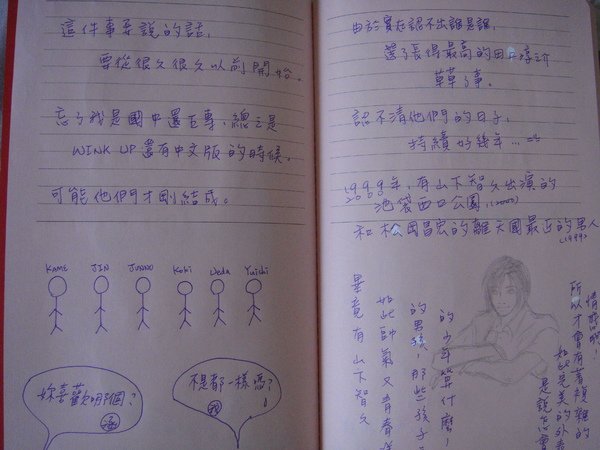 這件事要說的話，
要從很久很久以前開始。
忘了我是國中還五專，總之是
WINK UP還有中文版的時候。
可能他們才剛結成。
KAME JIN JUNNO Koki Ueda Yuichi
妳喜歡哪個？
不是都一樣嗎？
我
由於實在認不出誰是誰，
選了長得最高的田口淳之介
草草了事。
認不清他們的日子，
持續好幾年...
1999年，有山下智久出演的
2000
池袋西口公園，(2000)
和松岡昌宏的離天國最近的男人
(1999)
情感吧！
所以才會有著複雜的
如此完美的外表
是說怎會
的少年算什麼！
的男孩，那些孩子
如此帥氣又青春
畢竟有山下智久